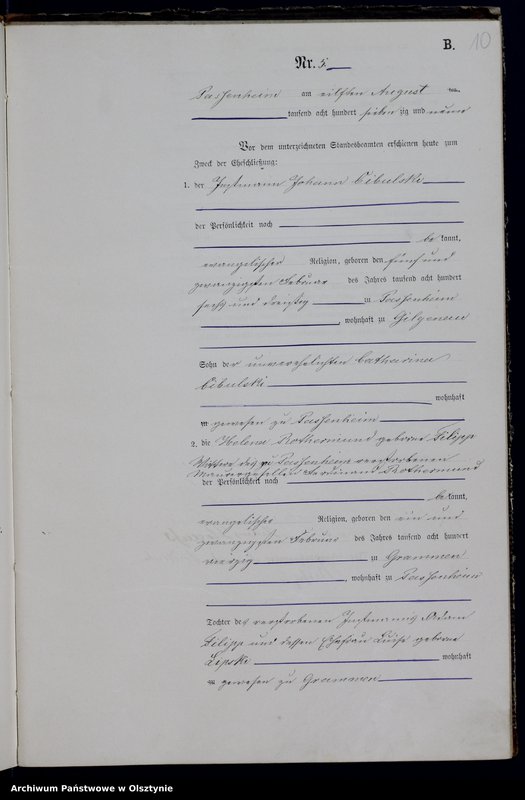 B. 10
Nr. 5
Passenheim am eilften August
tausend acht hundert sieben zig und neun
Vor dem unterzeichneten Standesbeamten erschienen heute zum
Zweck der Eheschließung:
1. der Instmann Johann Cibulski
der Persönlichkeit nach
be kannt,
evangelischer Religion, geboren den fünf und
zwanzigsten Februar des Jahres tausend acht hundert
sechs und dreißig zu Passenheim
, wohnhaft zu Gilgenau
Sohn der unverehelichten Catharina
Cibulski
wohnhaft
gewesen zu Passenheim
2. die Helena Rothermund geborne Filipp
Wittwe des zu Passenheim verstorbenen
Maurergesellen Ferdinand Rothermund
der Persönlichkeit nach
be kannt,
evangelischer Religion, geboren den ein und
zwanzigsten Februar des Jahres tausend acht hundert
vierzig zu Grammen
, wohnhaft zu Passenheim
Tochter des verstorbenen Instmanns Adam
Filipp und dessen Ehefrau Luise geborne
Lipski wohnhaft
gewesen zu Grammen
Archiwum Państwowe w Olsztynie